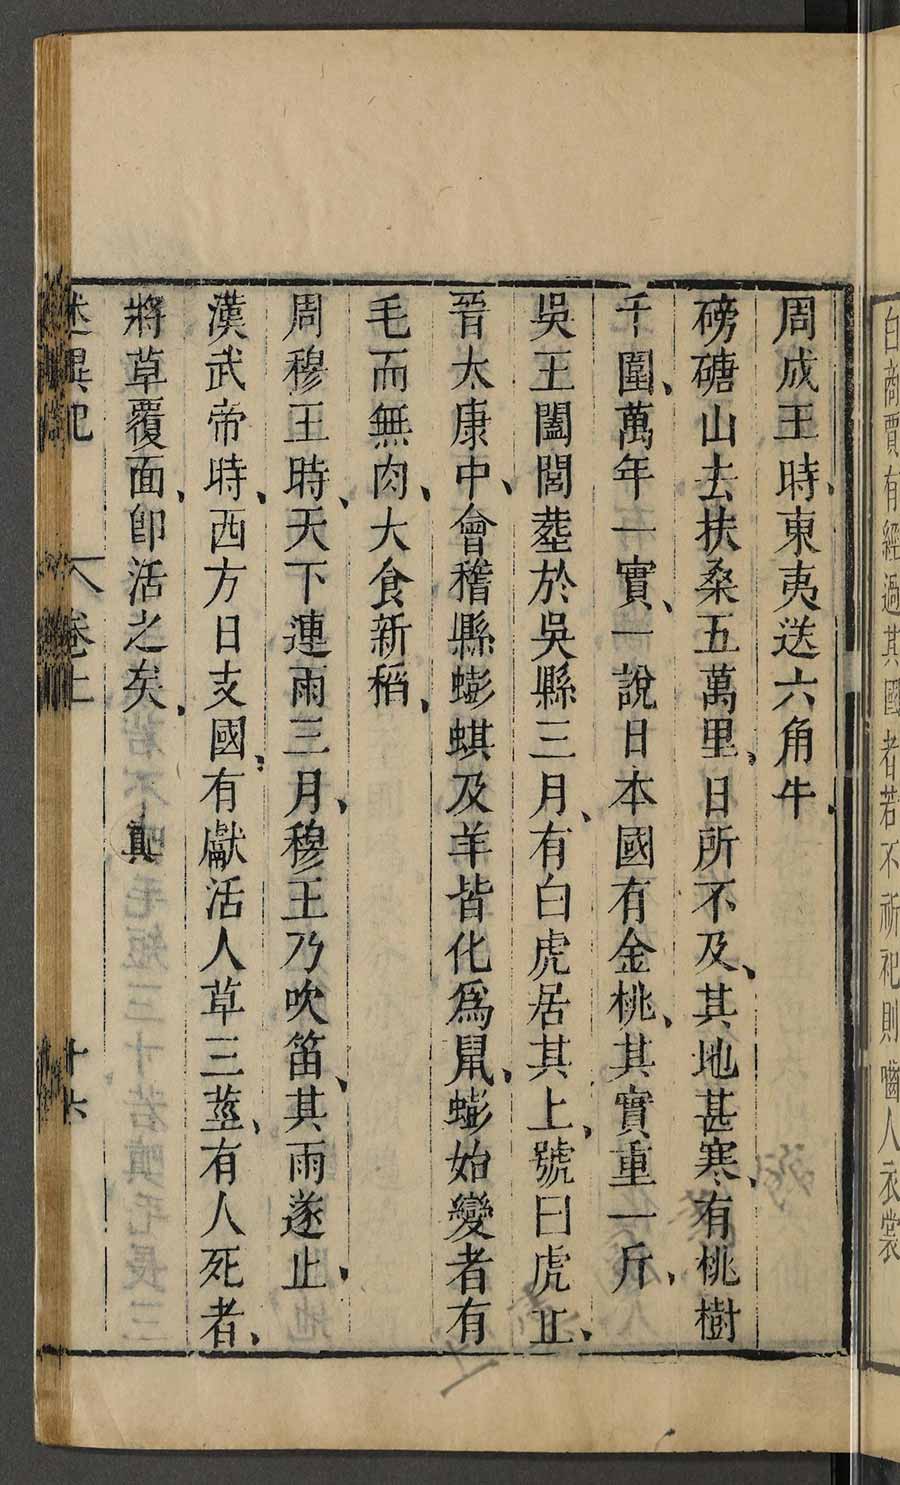 白商賈有經過其國者若不祈祀則嚙人衣裳
周成王時、東夷送六角牛、
磅磄山去扶桑五萬里、日所不及、其地甚寒、有桃樹
千圍、萬年一實、一說日本國有金桃、其實重一斤、
吳王闔閭塟於吳縣三月、有白虎居其上、號曰虎丘、
晉太康中、會稽縣蟛蜞及羊皆化為鼠、蟛始變者有
毛而無肉、大食新稻、
周穆王時、天下連雨三月、穆王乃吹笛、其雨遂止、
漢武帝時、西方日支國、有獻活人草三莖、有人死者、
將草覆面、卽活之矣、
述異記 卷上 十六